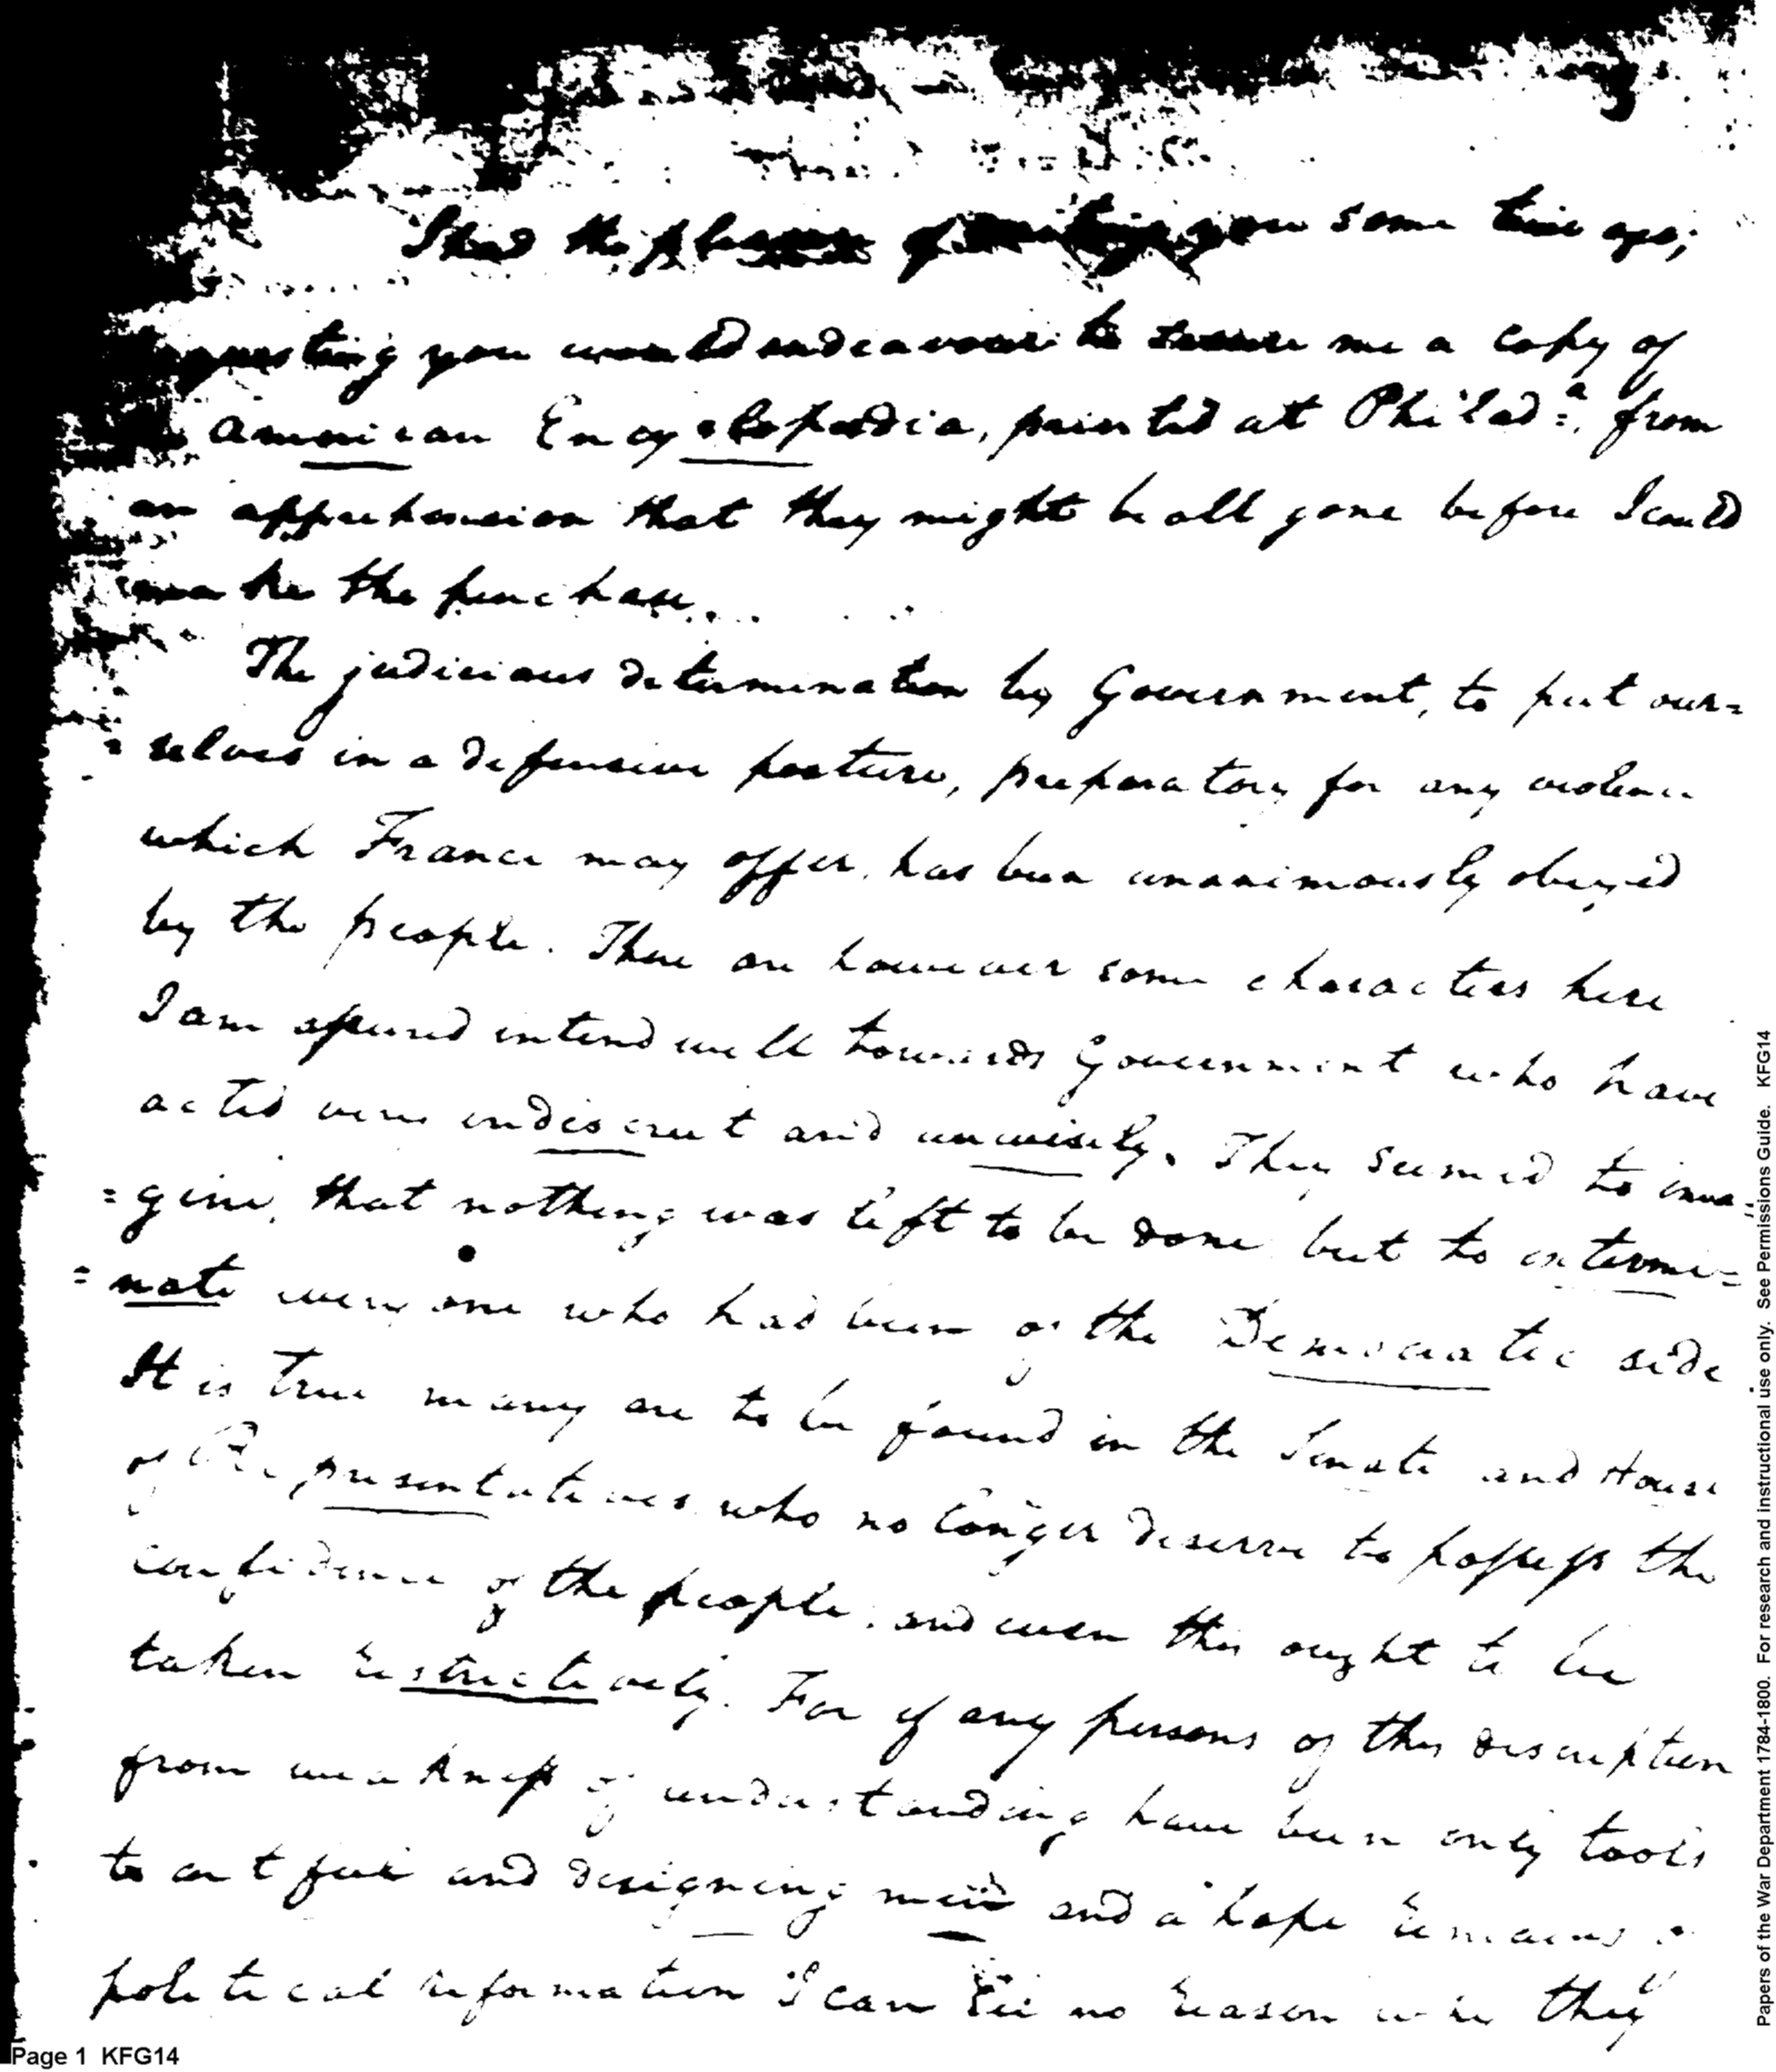 I had the pleasure of writing you some time ago,
requesting you would endeavour to secure me a copy of
American Encyclopædia, printed at Philad:a, from
an apprehension that they might be all gone before I could
make the purchase.
The judicious determination by Government, to put our=
=selves in a defensive posture, preparatory for any violence
which France may offer, has been unanimously obeyed
by the people. There are however some characters here
I am assured intend well towards Government who have
acted very indiscreet and unwisely. They seemed to ima=
=gine, that nothing was left to be done but to extermi=
=nate every one who had been of the Democratic side
It is true many are to be found in the Senate and House
of Representatives who no longer deserve to possess the
confidence of the people, and even this ought to be
taken restrictively. For if any persons of this description
from weakness of understanding have been only tools
to artful and designing men and a hope remains of
political reformation I can see no reason why they
Page 1 KFG14
Papers of the War Department 1784-1800. For research and instructional use only. See Permissions Guide. KFG14